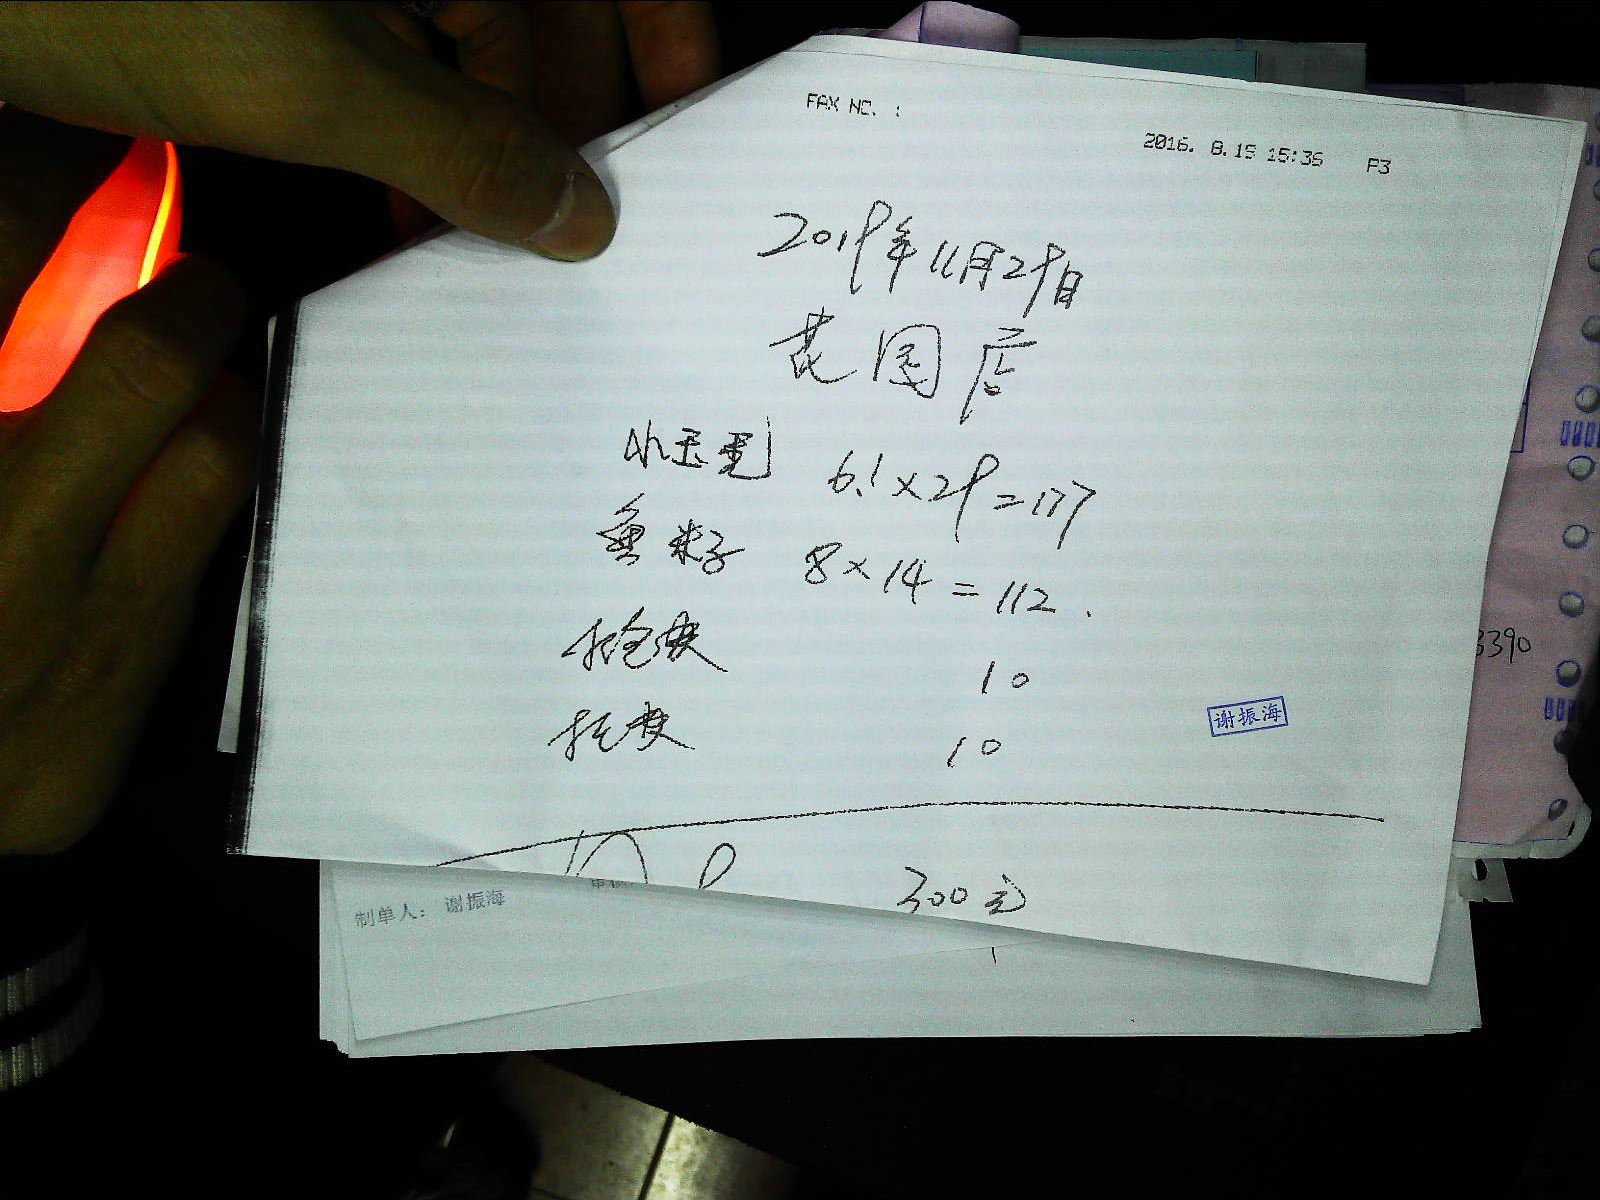 FAX NO. :
2016. 8.15 15:36 P3
2019年11月29日
花园店
小玉蛋 6.1×29=177
鱼籽 8×14=112.
10
谢振海
托费 10
300元
制单人: 谢振海
3390